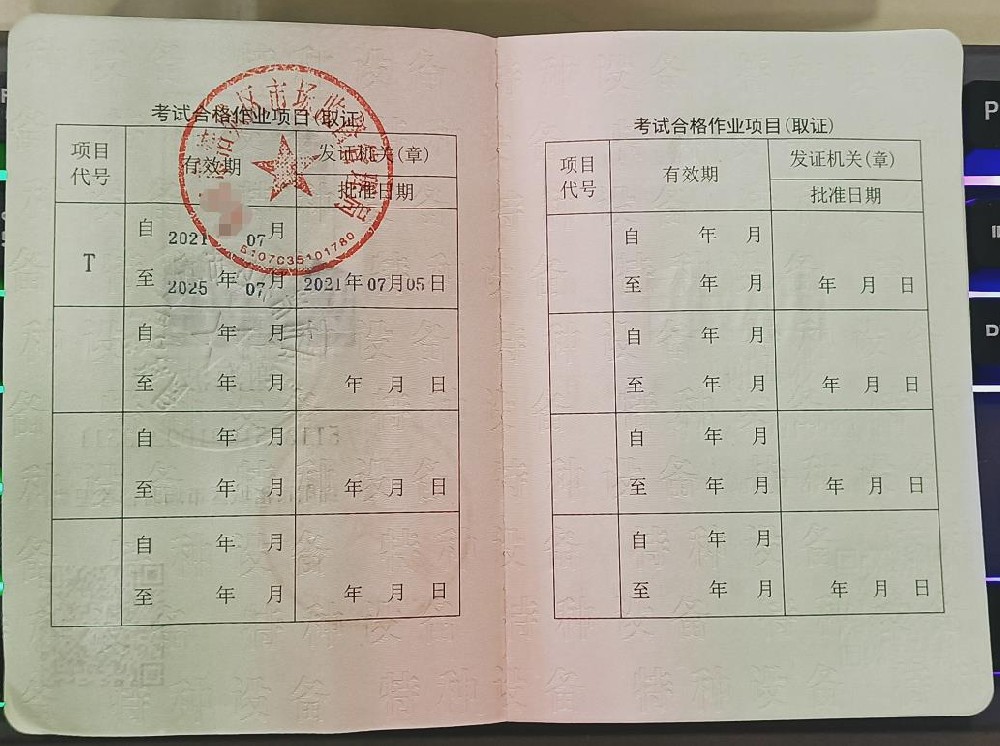 考试合格作业项目(取证)
项目
代号
有效期
发证机关(章)
批准日期
市场监督管理局
5107035101780
T
自 2021 07月
至 2025年 07月
2021年07月05日
自 年 月
至 年 月
年 月 日
自 年 月
至 年 月
年 月 日
自 年 月
至 年 月
年 月 日
考试合格作业项目(取证)
项目
代号
有效期
发证机关(章)
批准日期
自 年 月
至 年 月
年 月 日
自 年 月
至 年 月
年 月 日
自 年 月
至 年 月
年 月 日
自 年 月
至 年 月
年 月 日
特种设备